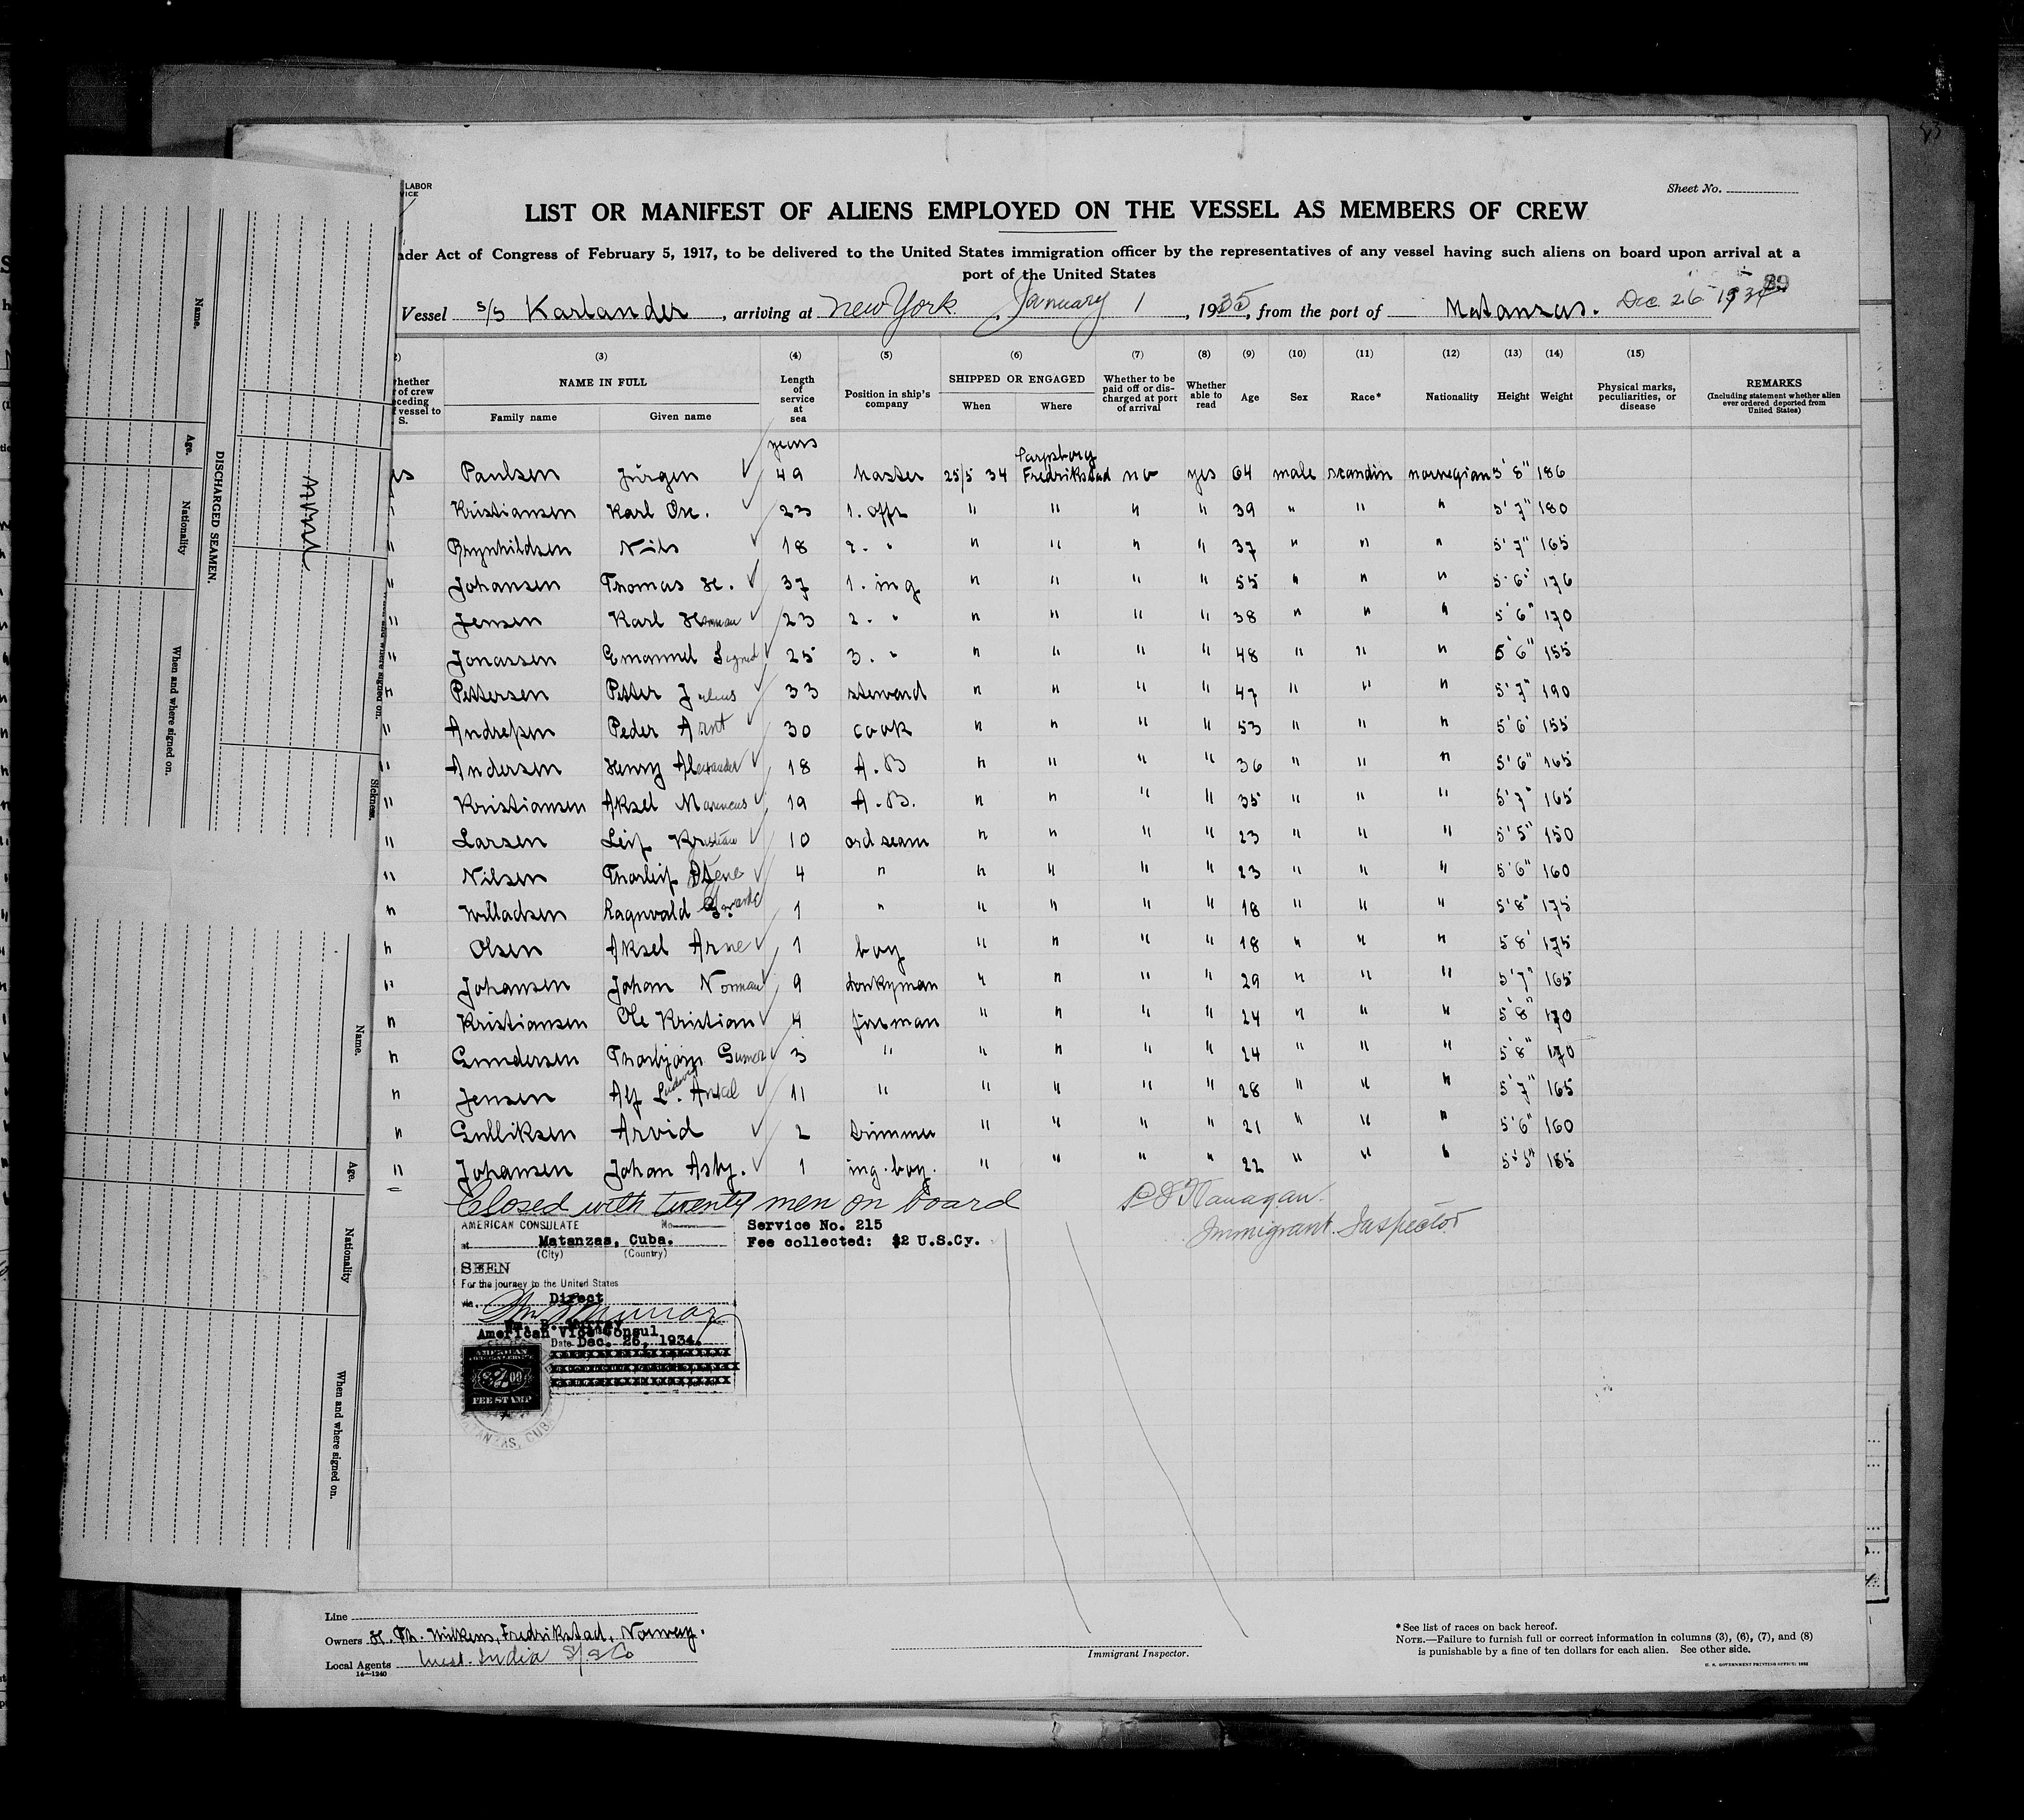 LABOR
VICE
Sheet No.
LIST OR MANIFEST OF ALIENS EMPLOYED ON THE VESSEL AS MEMBERS OF CREW
nder Act of Congress of February 5, 1917, to be delivered to the United States immigration officer by the representatives of any vessel having such aliens on board upon arrival at a
port of the United States
Vessel S/S Karlander, arriving at New York, January 1, 1935, from the port of Matanzas. Dec. 26 1934
(3) (4) (5) (6) (7) (8) (9) (10) (11) (12) (13) (14) (15)
NAME IN FULL
Family name Given name
Length of service at sea
Position in ship's company
SHIPPED OR ENGAGED
When Where
Whether to be paid off or discharged at port of arrival
Whether able to read
Age Sex Race* Nationality Height Weight
Physical marks, peculiarities, or disease
REMARKS
(Including statement whether alien ever ordered deported from United States)
years
Sarpsborg
Paulsen Jürgen 49 Master 25/5 34 Fredrikstad no yes 64 male scandin norwegian 5'8" 186
Kristiansen Karl 23 1. offr " " " " 39 " " " 5'7" 180
Brynhildsen Nils 18 2. " " " " " 37 " " " 5'7" 165
Johansen Thomas H. 37 1. ing " " " " 55 " " " 5'6" 176
Jensen Karl Herman 23 2. " " " " " 38 " " " 5'6" 170
Jonassen Emanuel 25 3. " " " " " 48 " " " 5'6" 155
Pettersen Petter Julius 33 steward " " " " 47 " " " 5'7" 190
Andreßen Peder Arnt 30 cook " " " " 53 " " " 5'6" 155
Andersen Henry Alexander 18 A.B " " " " 36 " " " 5'6" 165
Kristiansen Aksel 19 A.B. " " " " 35 " " " 5'7" 165
Larsen Leif Kristian 10 ord seam " " " " 23 " " " 5'5" 150
Nilsen Thorleif 4 " " " " " 23 " " " 5'6" 160
Willadsen Ragnvald 1 " " " " " 18 " " " 5'8" 175
Olsen Aksel Arne 1 boy " " " " 18 " " " 5 8' 175
Johansen Johan Norman 9 donkyman " " " " 29 " " " 5'7" 165
Kristiansen Ole Kristian 4 firsman " " " " 24 " " " 5'8" 170
Gundersen Thorbjörn 3 " " " " " 24 " " " 5'8" 170
Jensen Alf Ludvig 11 " " " " " 28 " " " 5'7" 165
Gulliksen Arvid 2 trimmer " " " " 21 " " " 5'6" 160
Johansen Johan Asbj. 1 ing. boy. " " " " 22 " " " 5'5" 185
Closed with twenty men on board
Immigrant Inspector
AMERICAN CONSULATE No.
at Matanzas, Cuba.
(City) (Country)
Service No. 215
Fee collected: $2 U.S.Cy.
SEEN
For the journey to the United States
via Direct
Wm. B. Murray
American Vice Consul
Date Dec. 26, 1934.
FEE STAMP
MATANZAS, CUBA
Line
Owners H. Th. Fredrikstad, Norway.
Local Agents West India S/S Co
14—1240
Immigrant Inspector.
*See list of races on back hereof.
NOTE.—Failure to furnish full or correct information in columns (3), (6), (7), and (8)
is punishable by a fine of ten dollars for each alien. See other side.
U. S. GOVERNMENT PRINTING OFFICE: 1932
DISCHARGED SEAMEN.
Name.
Age.
Nationality
When and where signed on.
Sickness.
Name.
Age.
Nationality
When and where signed on.